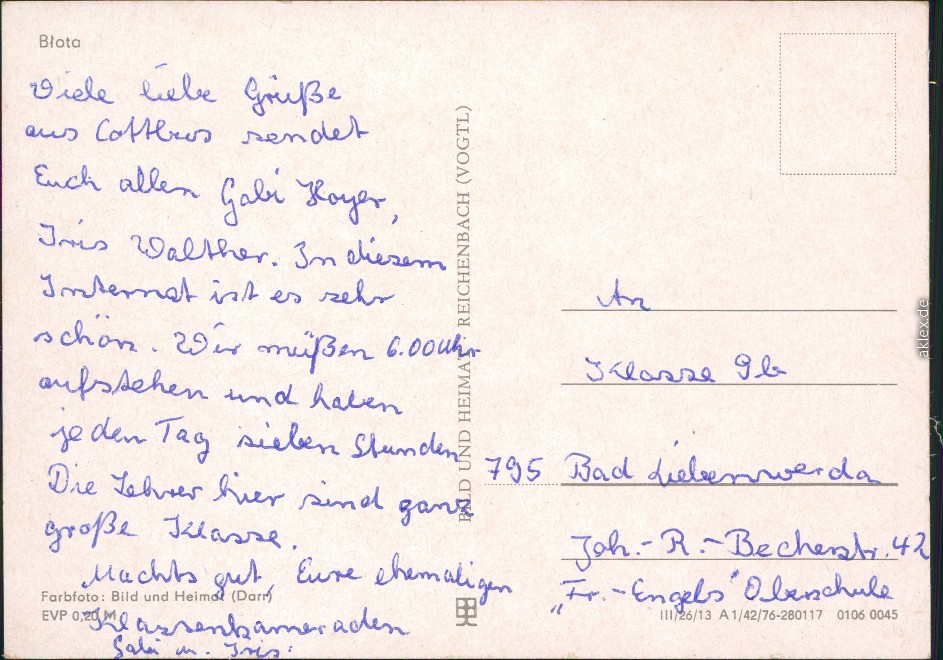 Błota
Viele liebe Grüße
aus Cottbus sendet
Euch allen Gabi Hoyer,
Iris Walther. In diesem
Internat ist es sehr
schön. Wir müßen 6.00 Uhr
aufstehen und haben
jeden Tag sieben Stunden
Die Lehrer hier sind ganz
große Klasse.
Machts gut, Eure ehemaligen
Klassenkameraden
Gabi u. Iris.
Farbfoto: Bild und Heimat (Darr)
EVP 0,20 M
BILD UND HEIMAT REICHENBACH (VOGTL)
An
Klasse 9b
795 Bad Liebenwerda
Joh.-R.-Becherstr. 42
"Fr.-Engels" Oberschule
III/26/13 A 1/42/76-280117 0106 0045
aklex.de